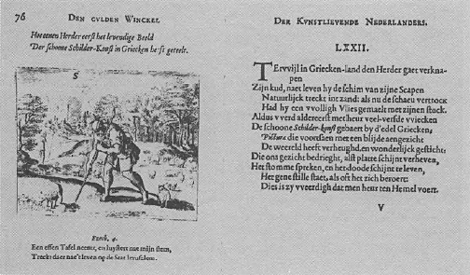 76 DEN GVLDEN WINCKEL
Hoe eenen Herder eerst het levendige Beeld
Der schoone Schilder-Konst in Griecken heeft geteelt.
Ezech. 4.
Een effen Tafel neemt, en luystert nae mijn stem,
Treckt daer nae't leven op de Stat Ierusalem.
DER KVNSTLIEVENDE NEDERLANDERS.
LXXII.
TErvvijl in Griecken-land den Herder gaet verknapen
Zijn kud, naet leven hy de schim van zijne Scapen
Natuurlijck treckt int zand: als nu de schaeu vertrock
Had hy een vvolligh Vlies gemaelt met zijnen stock.
Aldus vverd aldereerst met heur veel-verfde vvieken
De schoone Schilder-konst gebaert by d'edel Griecken,
Pictura die voordaen met een blijde aengezicht
De weereld heeft verheughd, en wonderlijck gesticht:
Die ons gezicht bedrieght, als t platte schijnt verheven,
Het stomme spreken, en het doode schijnt te leven,
Het gene stille staet, als oft het zich beroert:
Dies is zy vveerdigh dat men heur ten Hemel voert.
V